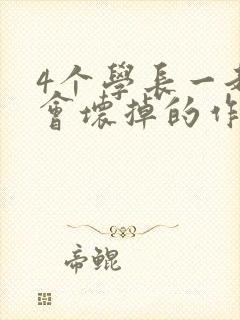 4个學長一
會壞掉的作
帝鲲